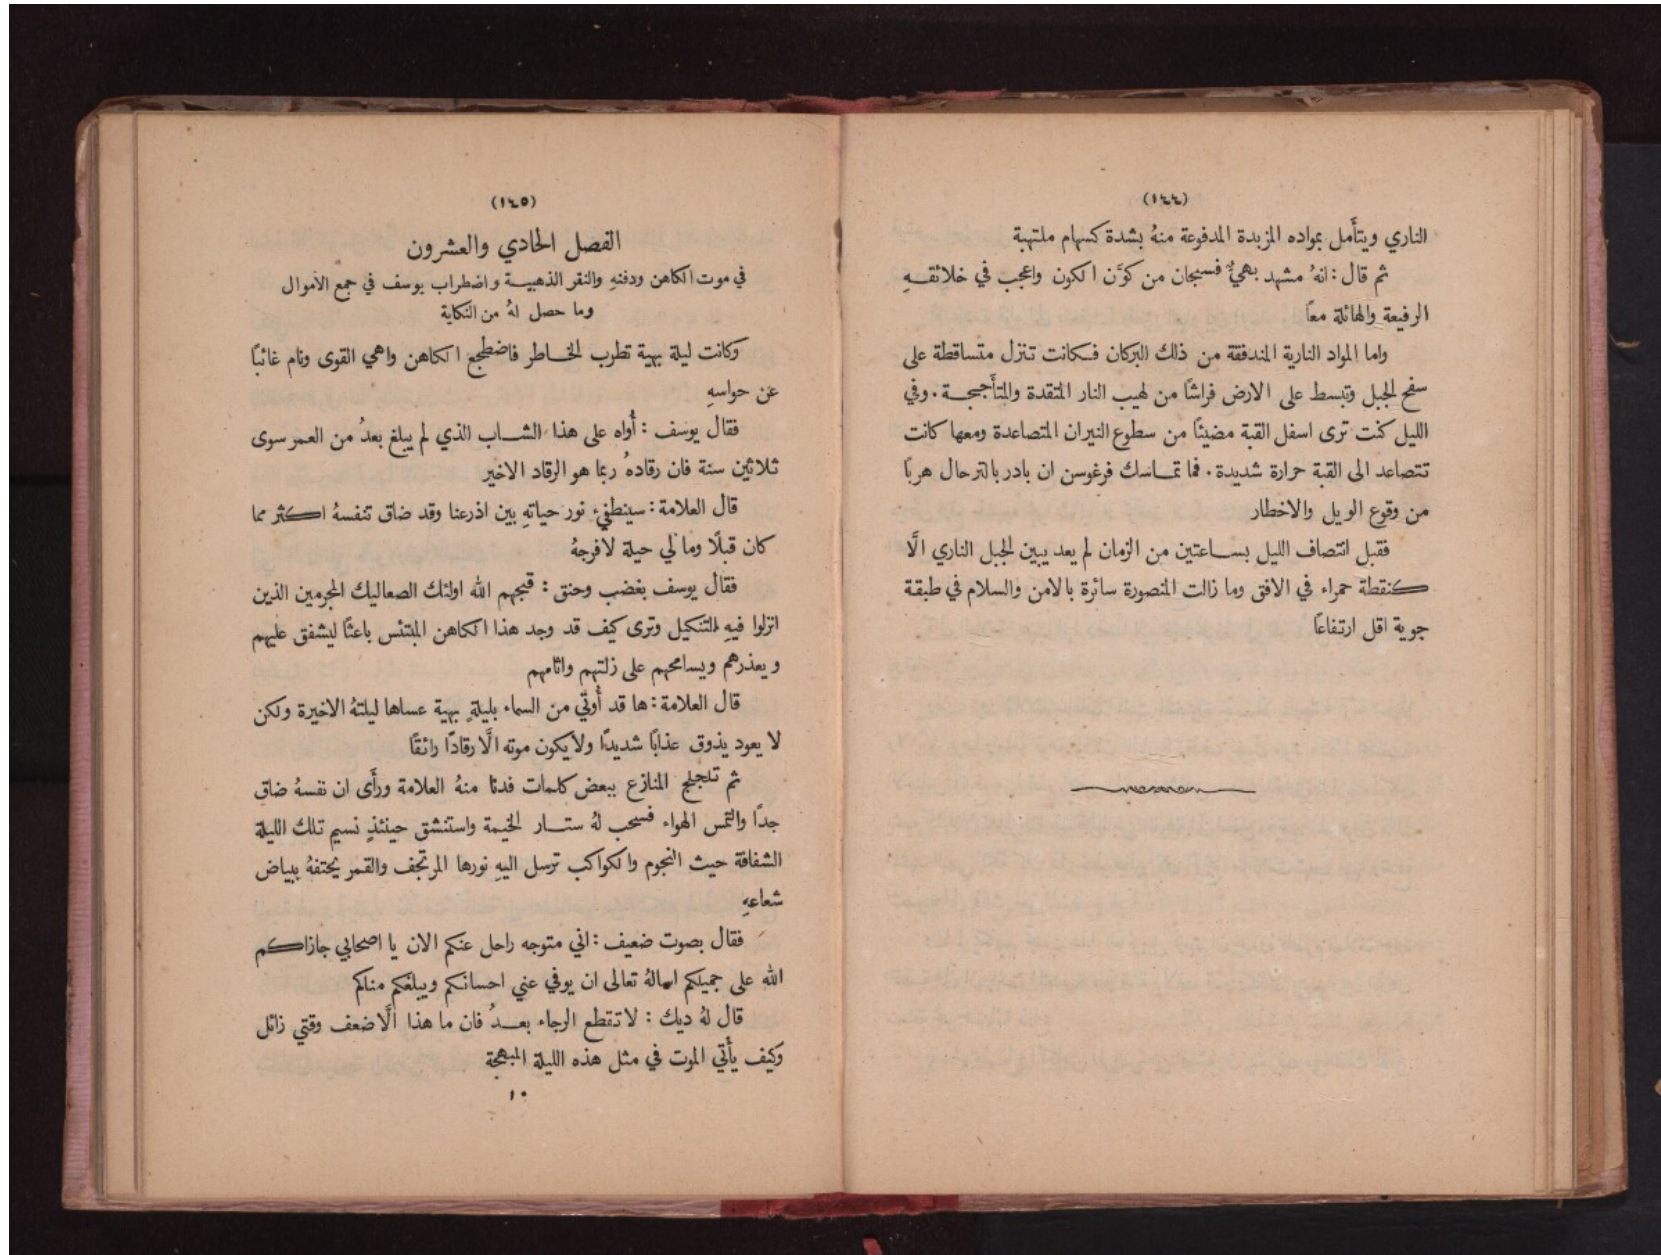 (١٤٤)
الناري ويتأمل بمواده المزبدة المدفوعة منهُ بشدة كسهام ملتهبة
ثم قال: انهُ مشهد بهيٌّ فسبحان من كوَّن الكون واعجب في خلائقـهِ
الرفيعة والهائلة معاً
واما المواد النارية المندفقة من ذلك البركان فـكانت تنزل متساقطة على
سفح الجبل وتبسط على الارض فراشًا من لهيب النار المتقدة والمتأججـة . وفي
الليل كنت ترى اسفل القبة مضيئًا من سطوع النيران المتصاعدة ومعها كانت
تتصاعد الى القبة حرارة شديدة . فما تمـاسك فرغوسن ان بادر بالترحال هربًا
من وقوع الويل والاخطار
فقبل انتصاف الليل بسـاعتين من الزمان لم يعد يبين الجبل الناري الَّا
كنقطة حمراء في الافق وما زالت المنصورة سائرة بالامن والسلام في طبقة
جوية اقل ارتفاعًا
(١٤٥)
الفصل الحادي والعشرون
في موت الكاهن ودفنهِ والنقر الذهبيـة واضطراب يوسف في جمع الاموال
وما حصل لهُ من النكاية
وكانت ليلة بهية تطرب الخـاطر فاضطجع الكاهن واهي القوى ونام غائبًا
عن حواسهِ
فقال يوسف : أُواه على هذا الشـاب الذي لم يبلغ بعدُ من العمر سوى
ثلاثين سنة فان رقادهُ ربما هو الرقاد الاخير
قال العلامة: سينطفيء نور حياتهِ بين اذرعنا وقد ضاق تنفسهُ اكثر مما
كان قبلًا وما لي حيلة لافرجهُ
فقال يوسف بغضب وحنق : قبحهم الله اولئك الصعاليك المجرمين الذين
انزلوا فيهِ التنكيل وترى كيف قد وجد هذا الكاهن المبتئس باعثًا ليشفق عليهم
ويعذرهم ويسامحهم على زلتهم واثامهم
قال العلامة: ها قد أُوتي من السماء بليلةٍ بهية عساها ليلتهُ الاخيرة ولكن
لا يعود يذوق عذابًا شديدًا ولا يكون موته الَّا رقادًا رائقًا
ثم تلجلج المنازع ببعض كلمات فدنا منهُ العلامة ورأَى ان نفسهُ ضاق
جدًا والتمس الهواء فسحب لهُ ستـار الخيمة واستنشق حينئذٍ نسيم تلك الليلة
الشفافة حيث النجوم والكواكب ترسل اليهِ نورها المرتجف والقمر يختفهُ ببياض
شعاعهِ
فقال بصوت ضعيف : اني متوجه راحل عنكم الان يا اصحابي جازاكم
الله على جميلكم اسالهُ تعالى ان يوفي عني احسانكم ويبلغكم مناكم
قال لهُ ديك : لا تقطع الرجاء بعـدُ فان ما هذا الَّا ضعف وقتي زائل
وكيف يأتي الموت في مثل هذه الليلة المبهجة
١٠